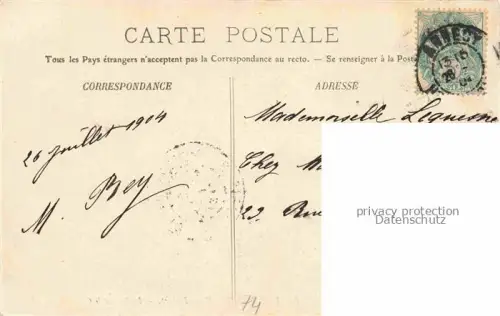 CARTE POSTALE
Tous les Pays étrangers n'acceptent pas la Correspondance au recto. — Se renseigner à la Poste
CORRESPONDANCE
ADRESSE
ANNECY
26 juillet 1904
M. Rey
Mademoiselle
Chez
privacy protection
Datenschutz
74